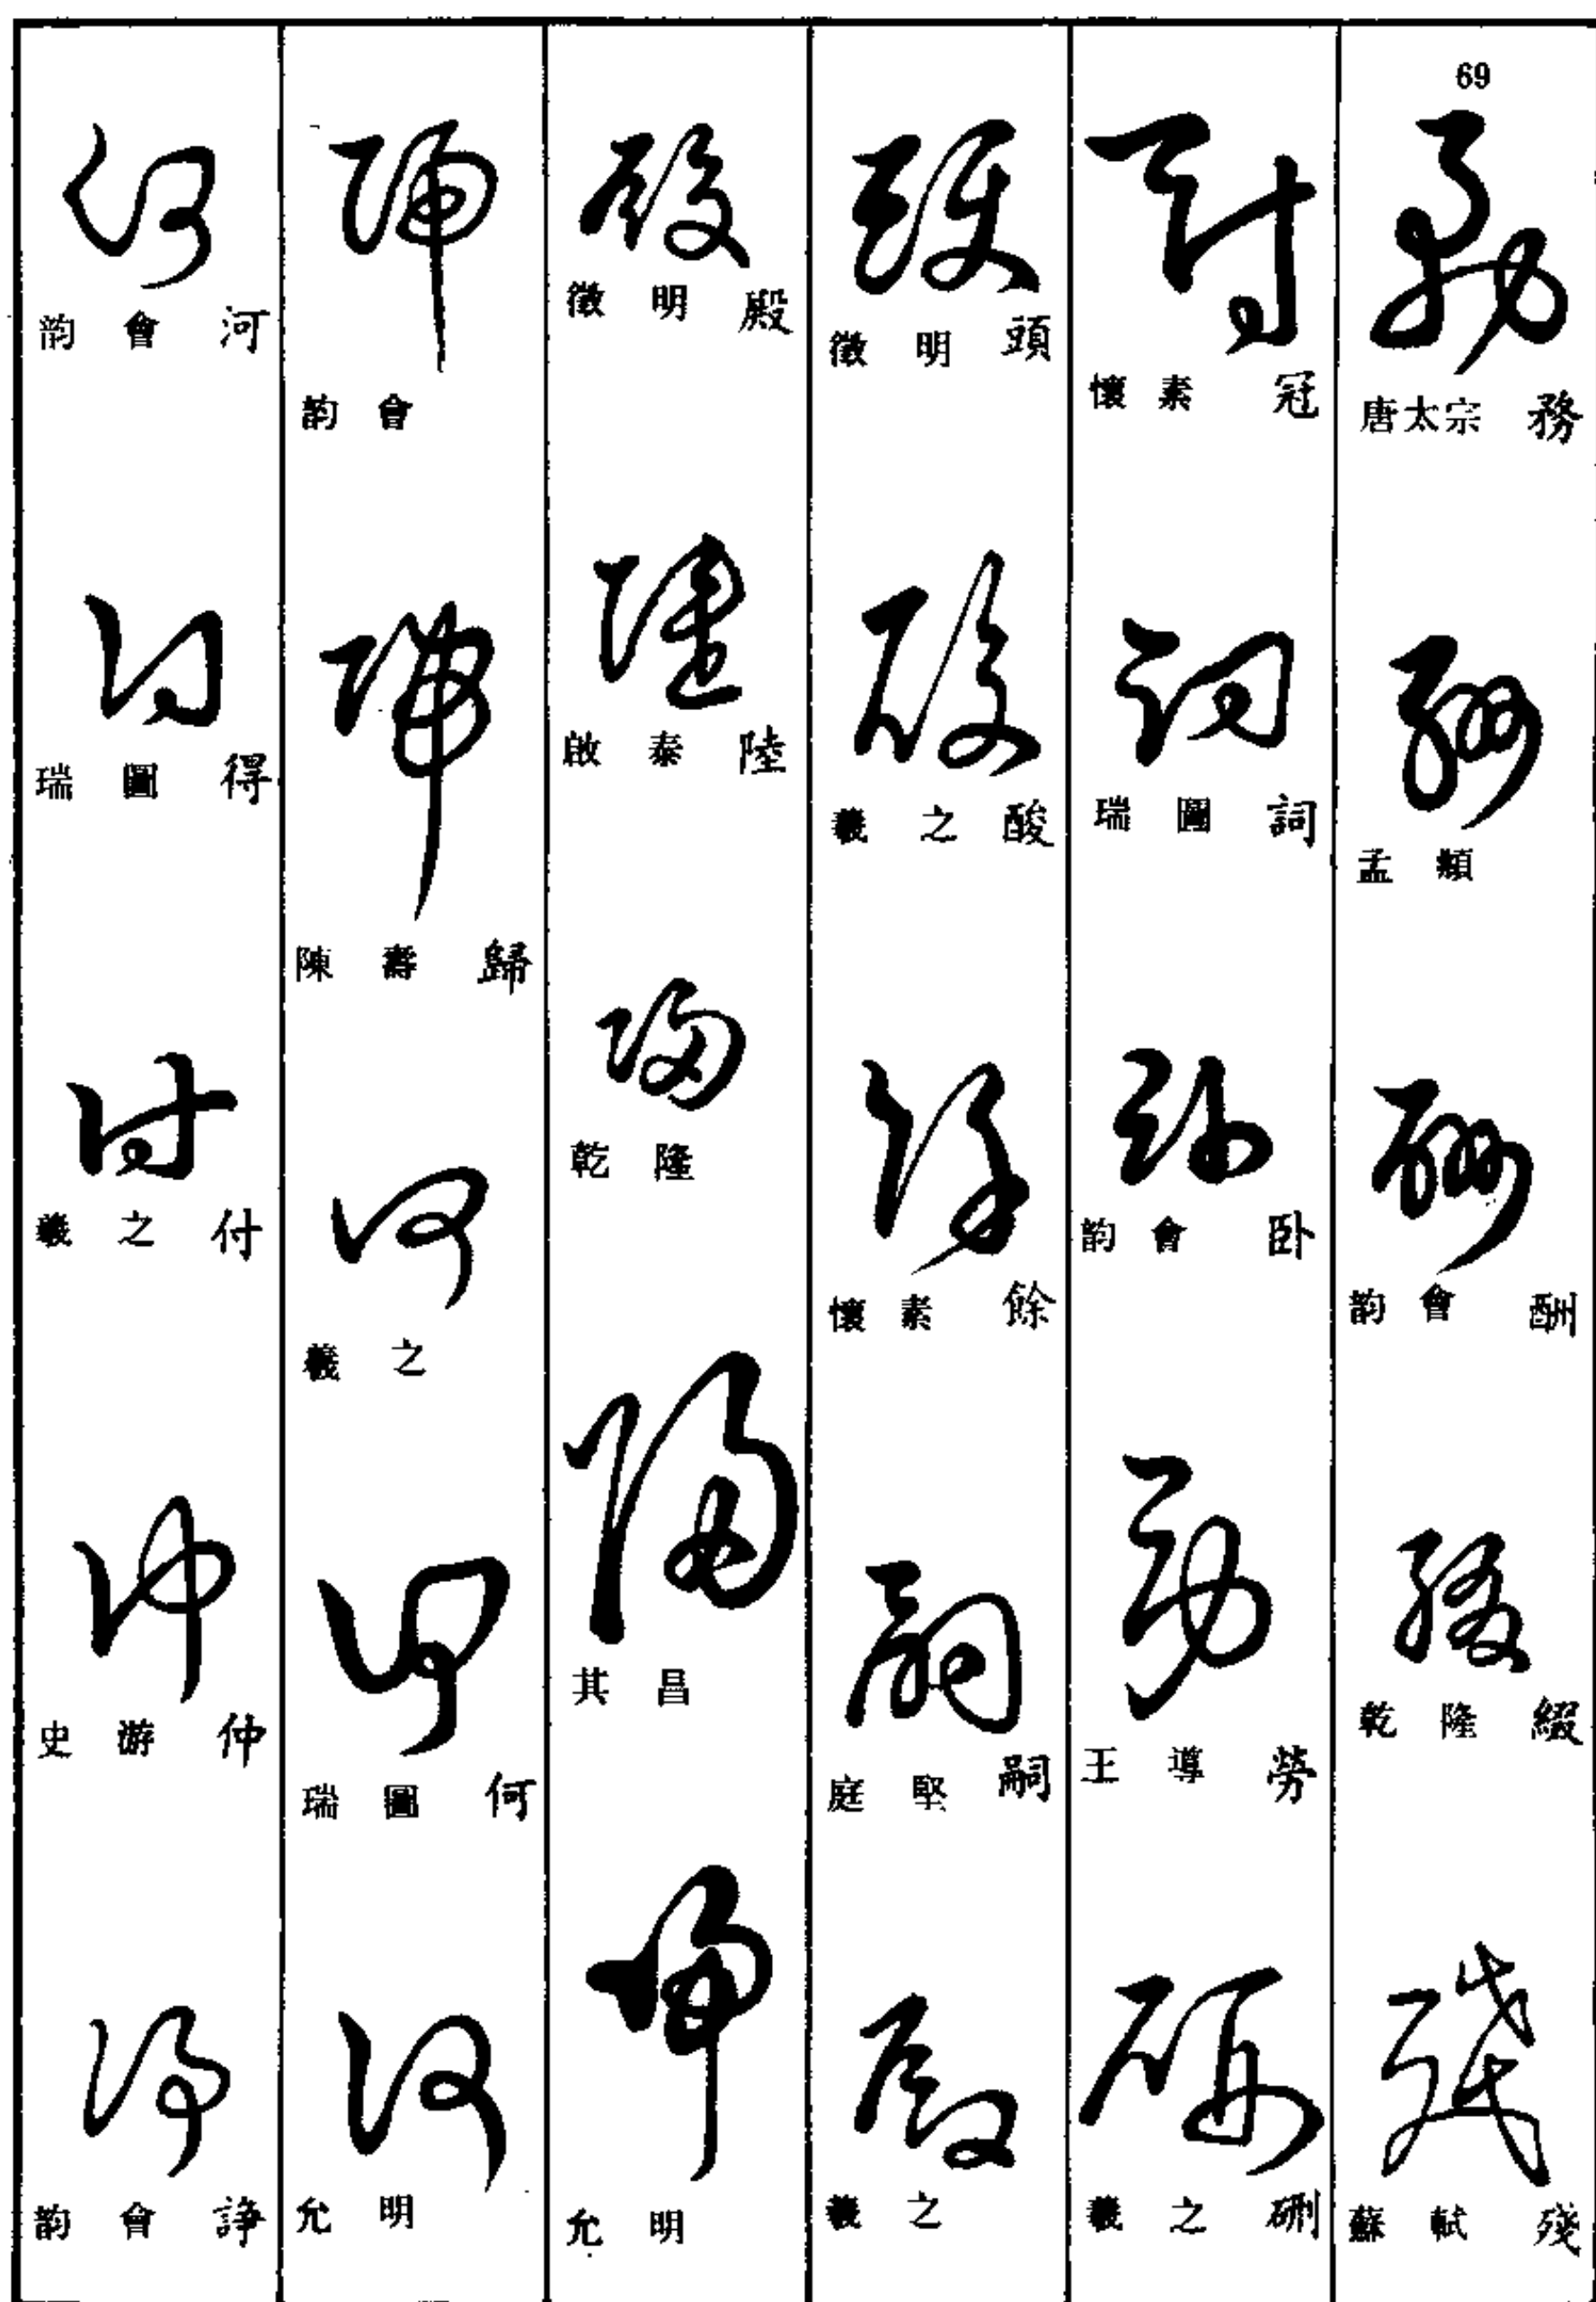 69
唐太宗 務
孟頫
韵會 酬
乾隆 綴
蘇軾 殘
懷素 冠
瑞圖 詞
韵會 卧
王導 勞
羲之 硎
徵明 頭
羲之 酸
懷素 餘
庭堅 嗣
羲之
徵明 殿
啟泰 陸
乾隆
其昌
允明
韵會
陳壽 歸
羲之
瑞圖 何
允明
韵會 河
瑞圖 得
羲之 付
史游 仲
韵會 諍